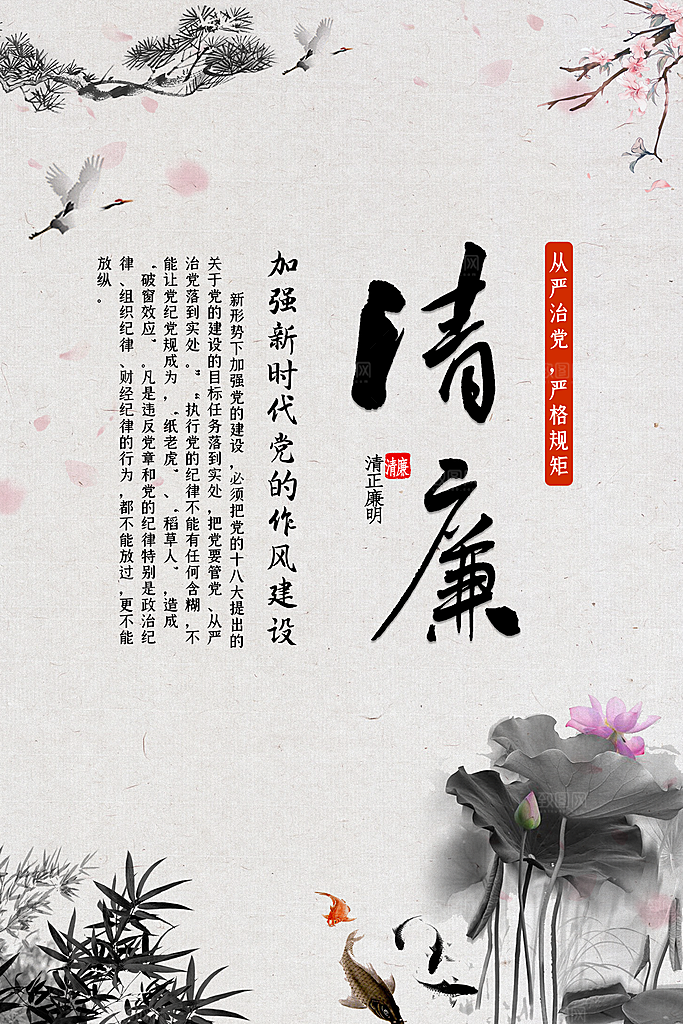 从严治党，严格规矩
清廉
清廉
清正廉明
加强新时代党的作风建设
新形势下加强党的建设，必须把党的十八大提出的
关于党的建设的目标任务落到实处，把党要管党、从严
治党落到实处。““执行党的纪律不能有任何含糊，不
能让党纪党规成为，“纸老虎”、“稻草人”，造成
“破窗效应”。凡是违反党章和党的纪律特别是政治纪
律、组织纪律、财经纪律的行为，都不能放过，更不能
放纵。